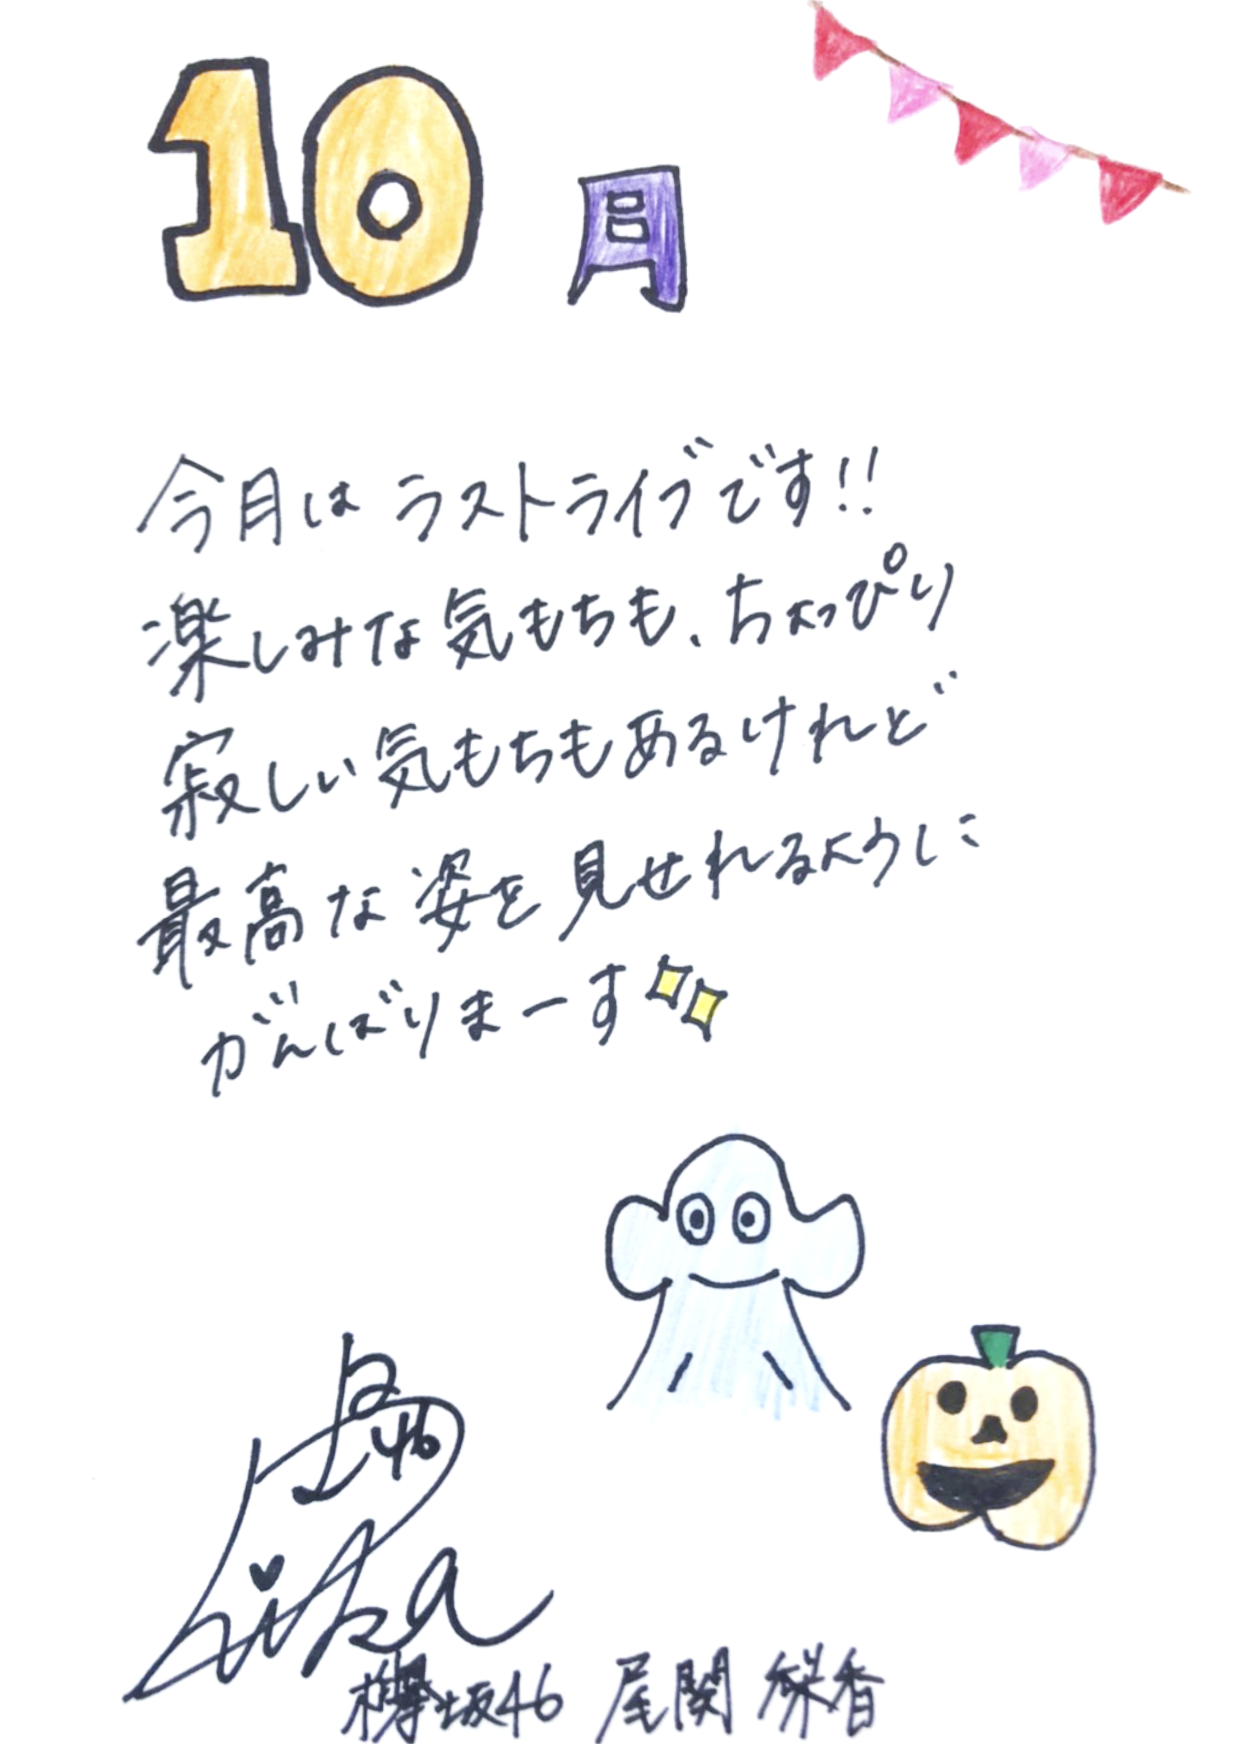 10月
今月はラストライブです!!
楽しみな気もちも、ちょっぴり
寂しい気もちもあるけれど
最高な姿を見せれるように
がんばりまーす
欅坂46
Rika
欅坂46 尾関 梨香